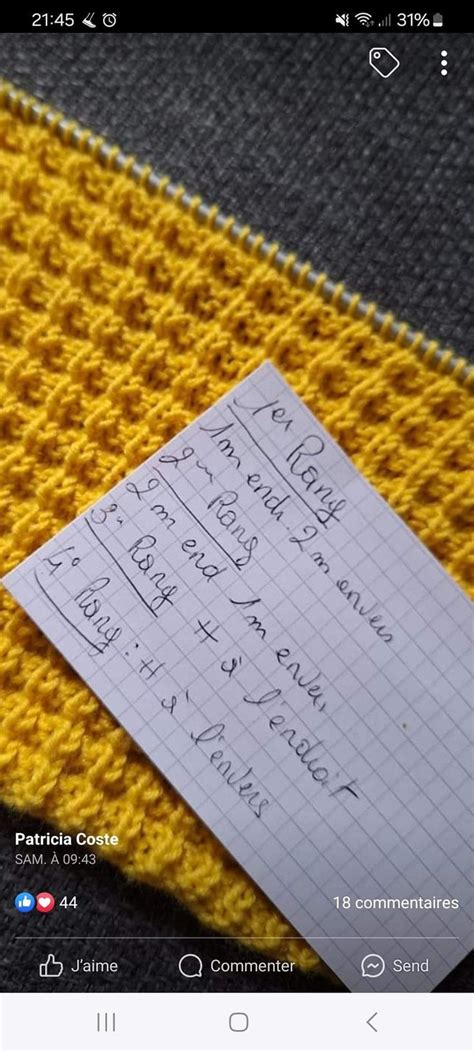 21:45
31%
1er Rang
1m endr. 2m envers
2em Rang
2m end 1m envers
3e Rang tt à l'endroit
4e Rang: tt à l'envers
Patricia Coste
SAM. À 09:43
44
18 commentaires
J'aime
Commenter
Send